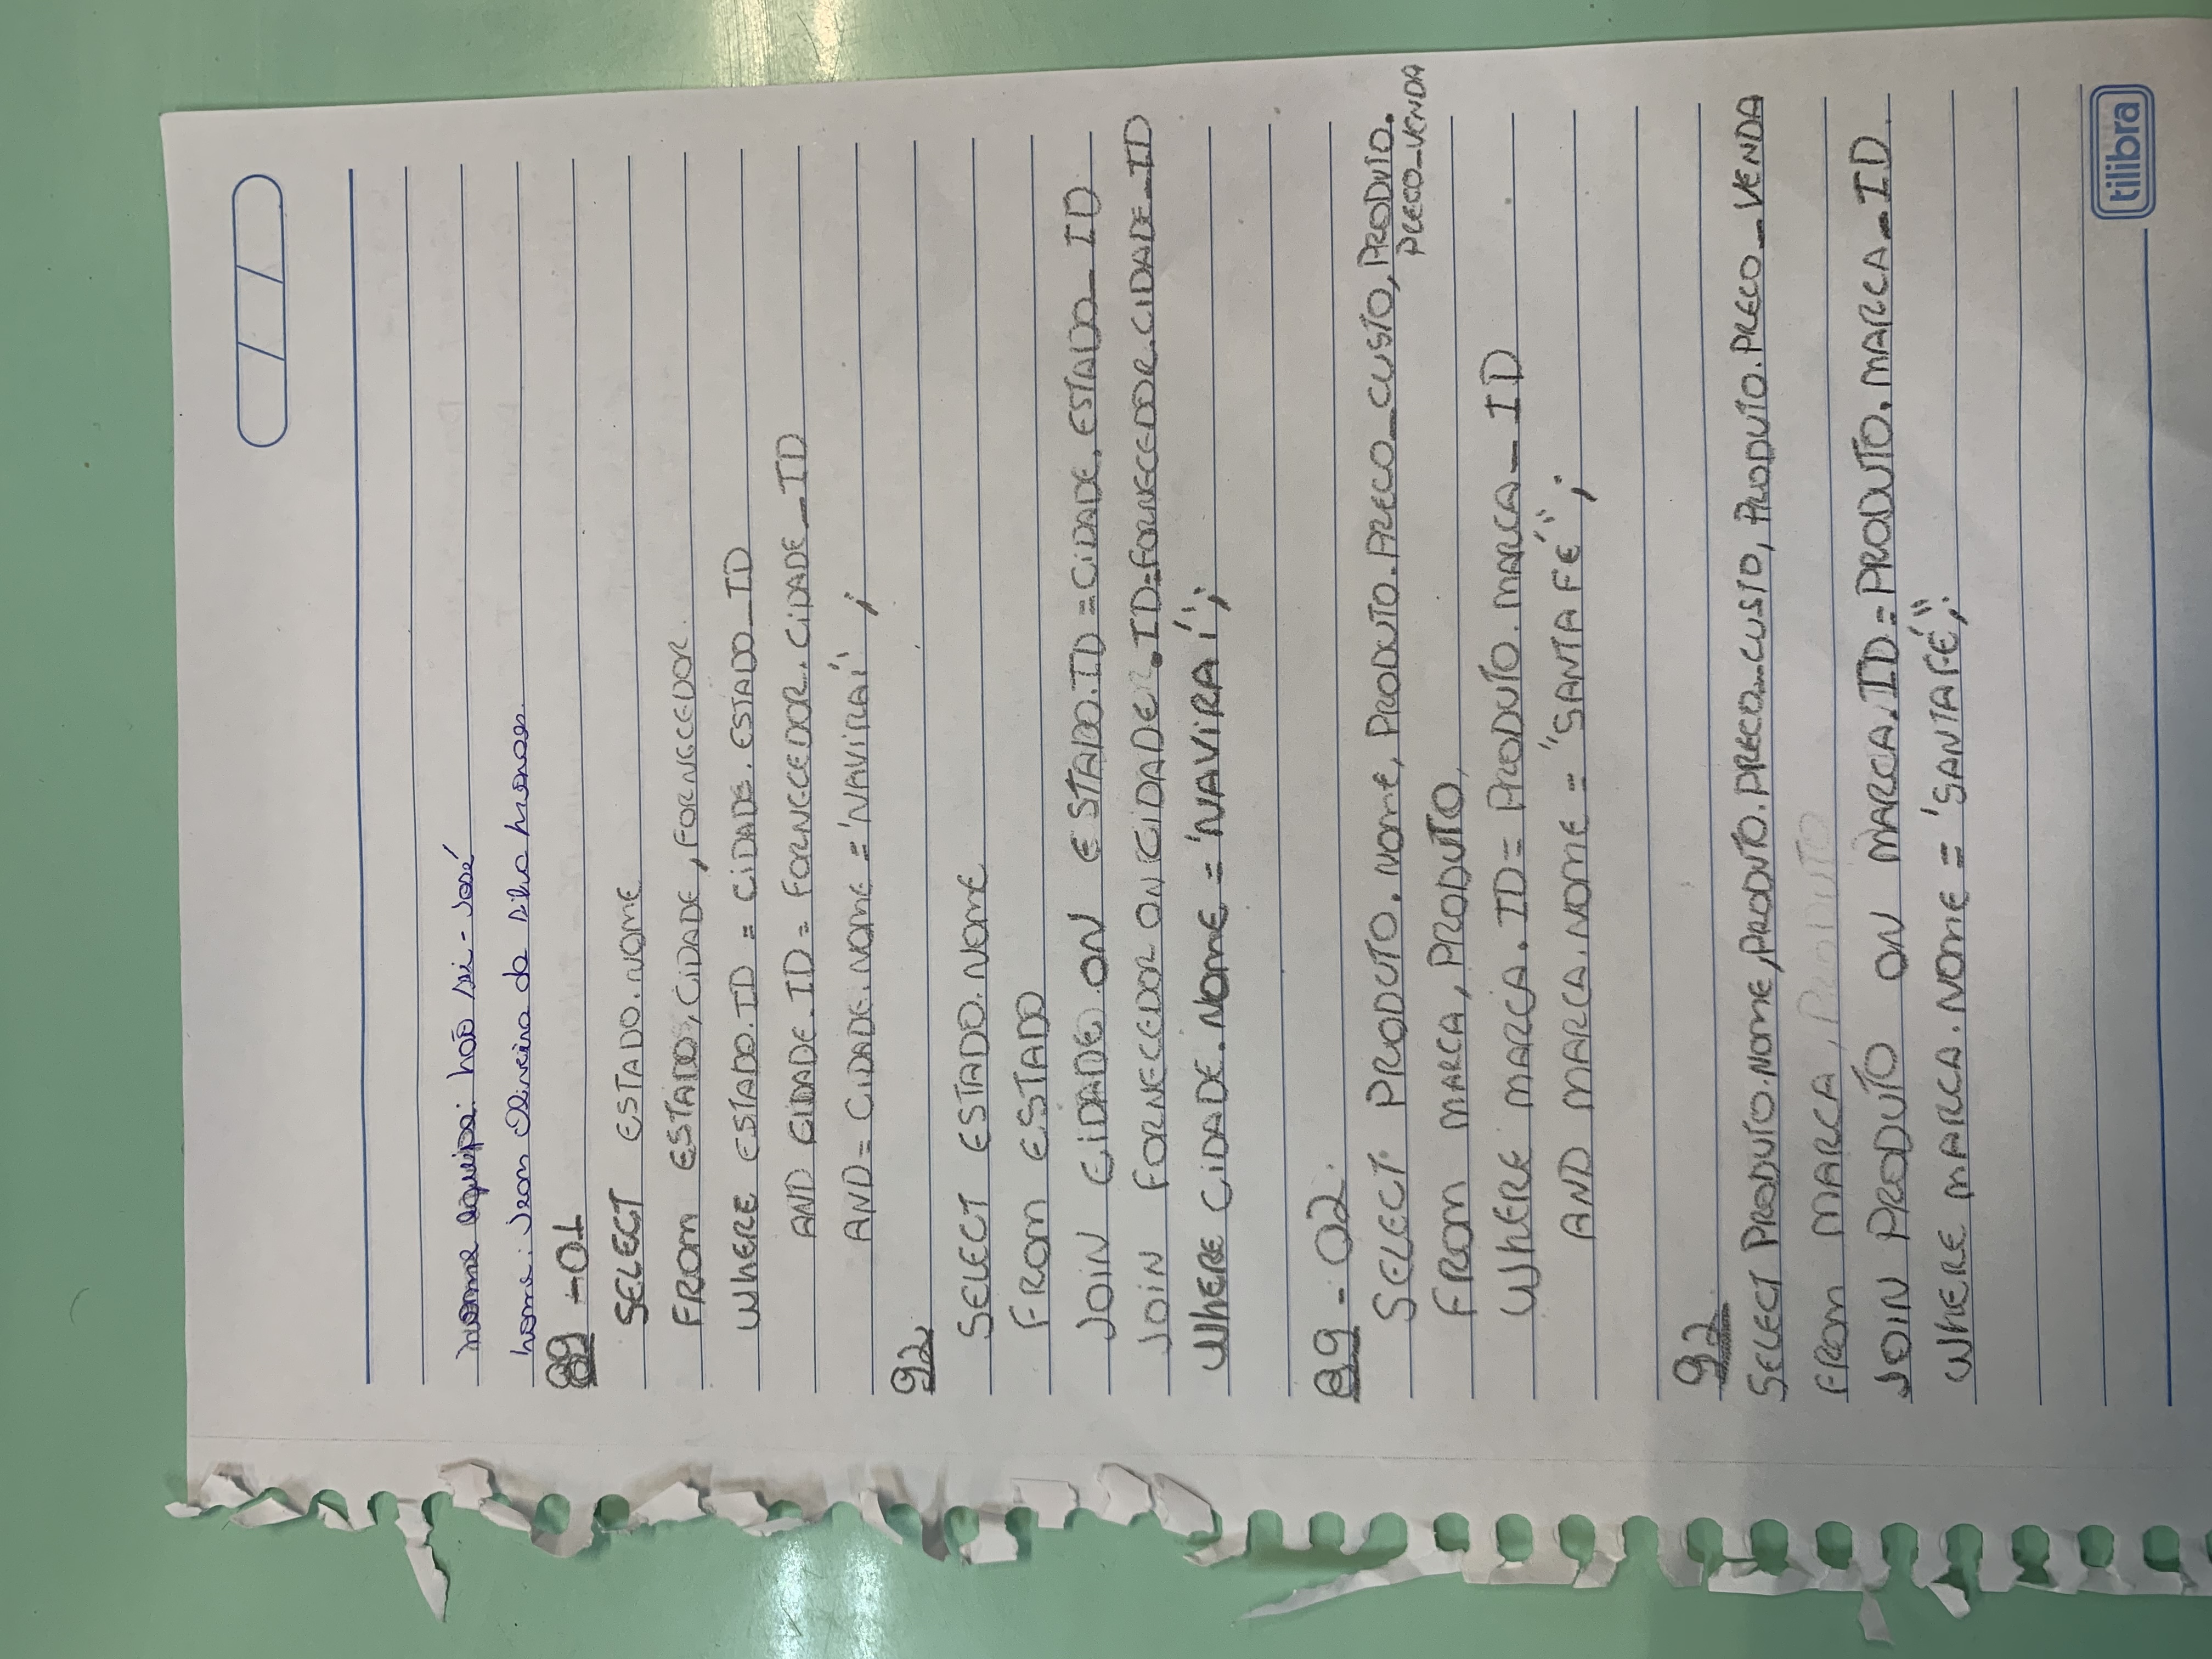 nome equipe: não sei - José
nome: Jean Oliveira da Silva Moraes
89 - 01
SELECT ESTADO.NOME
FROM ESTADO, CIDADE, FORNECEDOR.
WHERE ESTADO.ID = CIDADE.ESTADO_ID
AND CIDADE.ID = FORNECEDOR.CIDADE_ID
AND = CIDADE.NOME = 'NAVIRAÍ' ;
92
SELECT ESTADO.NOME
FROM ESTADO
JOIN CIDADE ON ESTADO.ID = CIDADE.ESTADO_ID
JOIN FORNECEDOR ON CIDADE.ID=FORNECEDOR.CIDADE_ID
WHERE CIDADE.NOME = 'NAVIRAÍ';
89 - 02.
SELECT PRODUTO.NOME, PRODUTO.PRECO_CUSTO, PRODUTO.
PRECO_VENDA
FROM MARCA, PRODUTO,
WHERE MARCA.ID = PRODUTO.MARCA_ID
AND MARCA.NOME = "SANTA FÉ" ;
92
SELECT PRODUTO.NOME, PRODUTO.PRECO_CUSTO, PRODUTO.PRECO_VENDA
FROM MARCA, PRODUTO
JOIN PRODUTO ON MARCA.ID = PRODUTO.MARCA_ID.
WHERE MARCA.NOME = 'SANTA FÉ";
tilibra